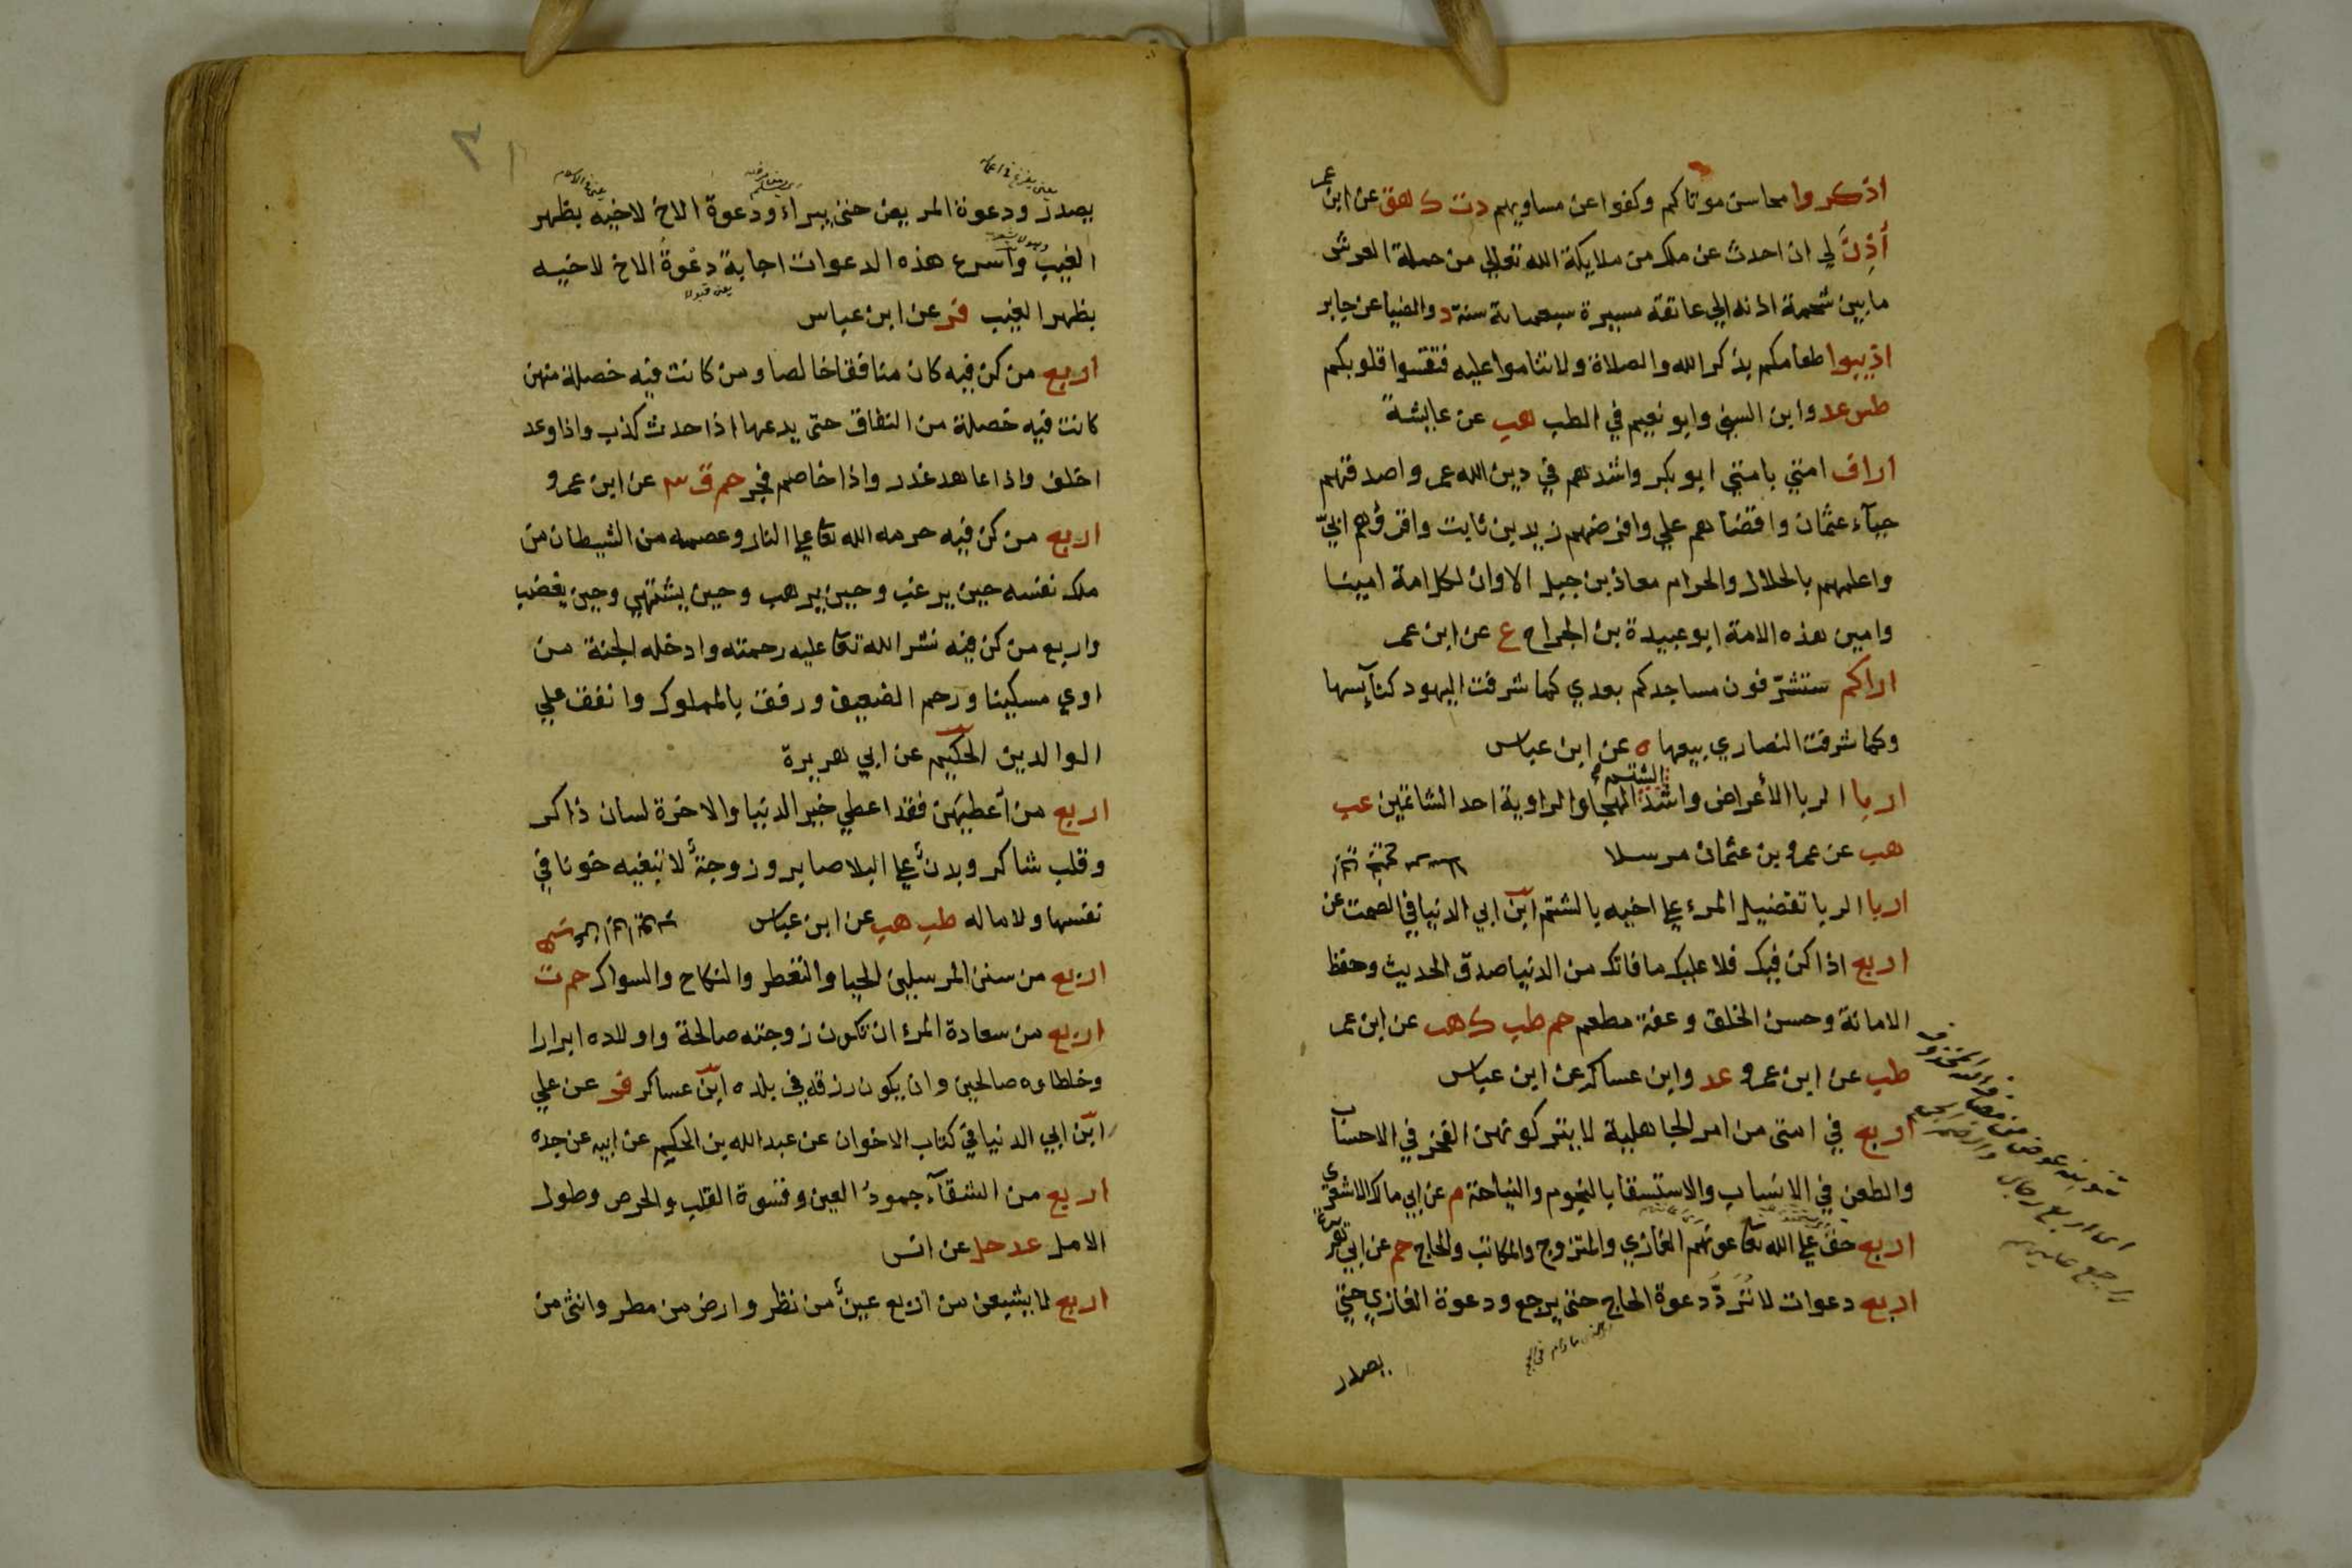 اذكروا محاسن موتاكم وكفوا عن مساويهم دت ك هق عن ابن عمر
أذن لي ان احدث عن ملك من ملايكة الله تعالي من حملة العرش
ما بين شحمة اذنه الي عاتقه مسيرة سبعماية سنة د والضيا عن جابر
اذيبوا طعامكم بذكر الله والصلاة ولا تناموا عليه فتقسوا قلوبكم
طس عد وابن السني وابو نعيم في الطب هب عن عايشة
اراف امتي بامتي ابو بكر واشدهم في دين الله عمر واصدقهم
حيآء عثمان واقضاهم علي وافرضهم زيد بن ثابت واقرؤهم ابيّ
واعلمهم بالحلال والحرام معاذ بن جبل الا وان لكل امة امينا
وامين هذه الامة ابو عبيدة بن الجراح ع عن ابن عمر
اراكم ستشرّفون مساجدكم بعدي كما شرفت اليهود كنآيسها
وكما شرفت النصاري بيعها ه عن ابن عباس
اربا الربا الأعراض واشد الشتم الهجا والراوية احد الشاتمين عب
هب عن عمرو بن عثمان مرسلا
اربا الربا تفضيل المرء علي اخيه بالشتم ابن ابي الدنيا في الصمت عن
اربع اذا كن فيك فلا عليك ما فاتك من الدنيا صدق الحديث وحفظ
الامانة وحسن الخلق وعفة مطعم حم طب ك هب عن ابن عمر
طب عن ابن عمرو عد وابن عساكر عن ابن عباس
اربع في امتي من امر الجاهلية لا يتركونهن الفخر في الاحساب
والطعن في الانساب والاستسقا بالنجوم والنياحة م عن ابي مالك الاشعري
اربع حق علي الله تعا عونهم الغازي والمتزوج والمكاتب والحاج حم عن ابي هريرة
اربع دعوات لا تُرَدُّ دعوة الحاج حتي يرجع ودعوة الغازي حتي
يصدر
يصدر ودعوة المريض حتي يبراء ودعوة الاخ لاخيه بظهر
الغيب واسرع هذه الدعوات اجابة دعوةُ الاخ لاخيه
يعني قبولا
بظهر الغيب فر عن ابن عباس
اربع من كن فيه كان منافقا خالصا ومن كانت فيه خصلة منهن
كانت فيه خصلة من النفاق حتى يدعها اذا حدث كذب واذا وعد
اخلف واذا عاهد غدر واذا خاصم فجر حم ق ٣ عن ابن عمرو
اربع من كن فيه حرمه الله تعا علي النار وعصمه من الشيطان من
ملك نفسه حين يرغب وحين يرهب وحين يشتهي وحين يغضب
واربع من كن فيه نشر الله تعا عليه رحمته وادخله الجنة من
اوي مسكينا ورحم الضعيف ورفق بالمملوك وانفق علي
الوالدين الحكيم عن ابي هريرة
اربع من أعطيهن فقد اعطي خير الدنيا والاخرة لسان ذاكر
وقلب شاكر وبدن علي البلا صابر وزوجة لا تبغيه خونا في
نفسها ولا ماله طب هب عن ابن عباس
اربع من سنن المرسلين الحيا والتعطر والنكاح والسواك حم ت
اربع من سعادة المرء ان تكون زوجته صالحة واولاده ابرارا
وخلطاوه صالحين وان يكون رزقه في بلده ابن عساكر فر عن علي
ابن ابي الدنيا في كتاب الاخوان عن عبد الله بن الحكيم عن ابيه عن جده
اربع من الشقآء جمودُ العين وقسوة القلب والحرص وطول
الامل عد حل عن انس
اربع لا يشبعن من اربع عين من نظر وارض من مطر وانثى من